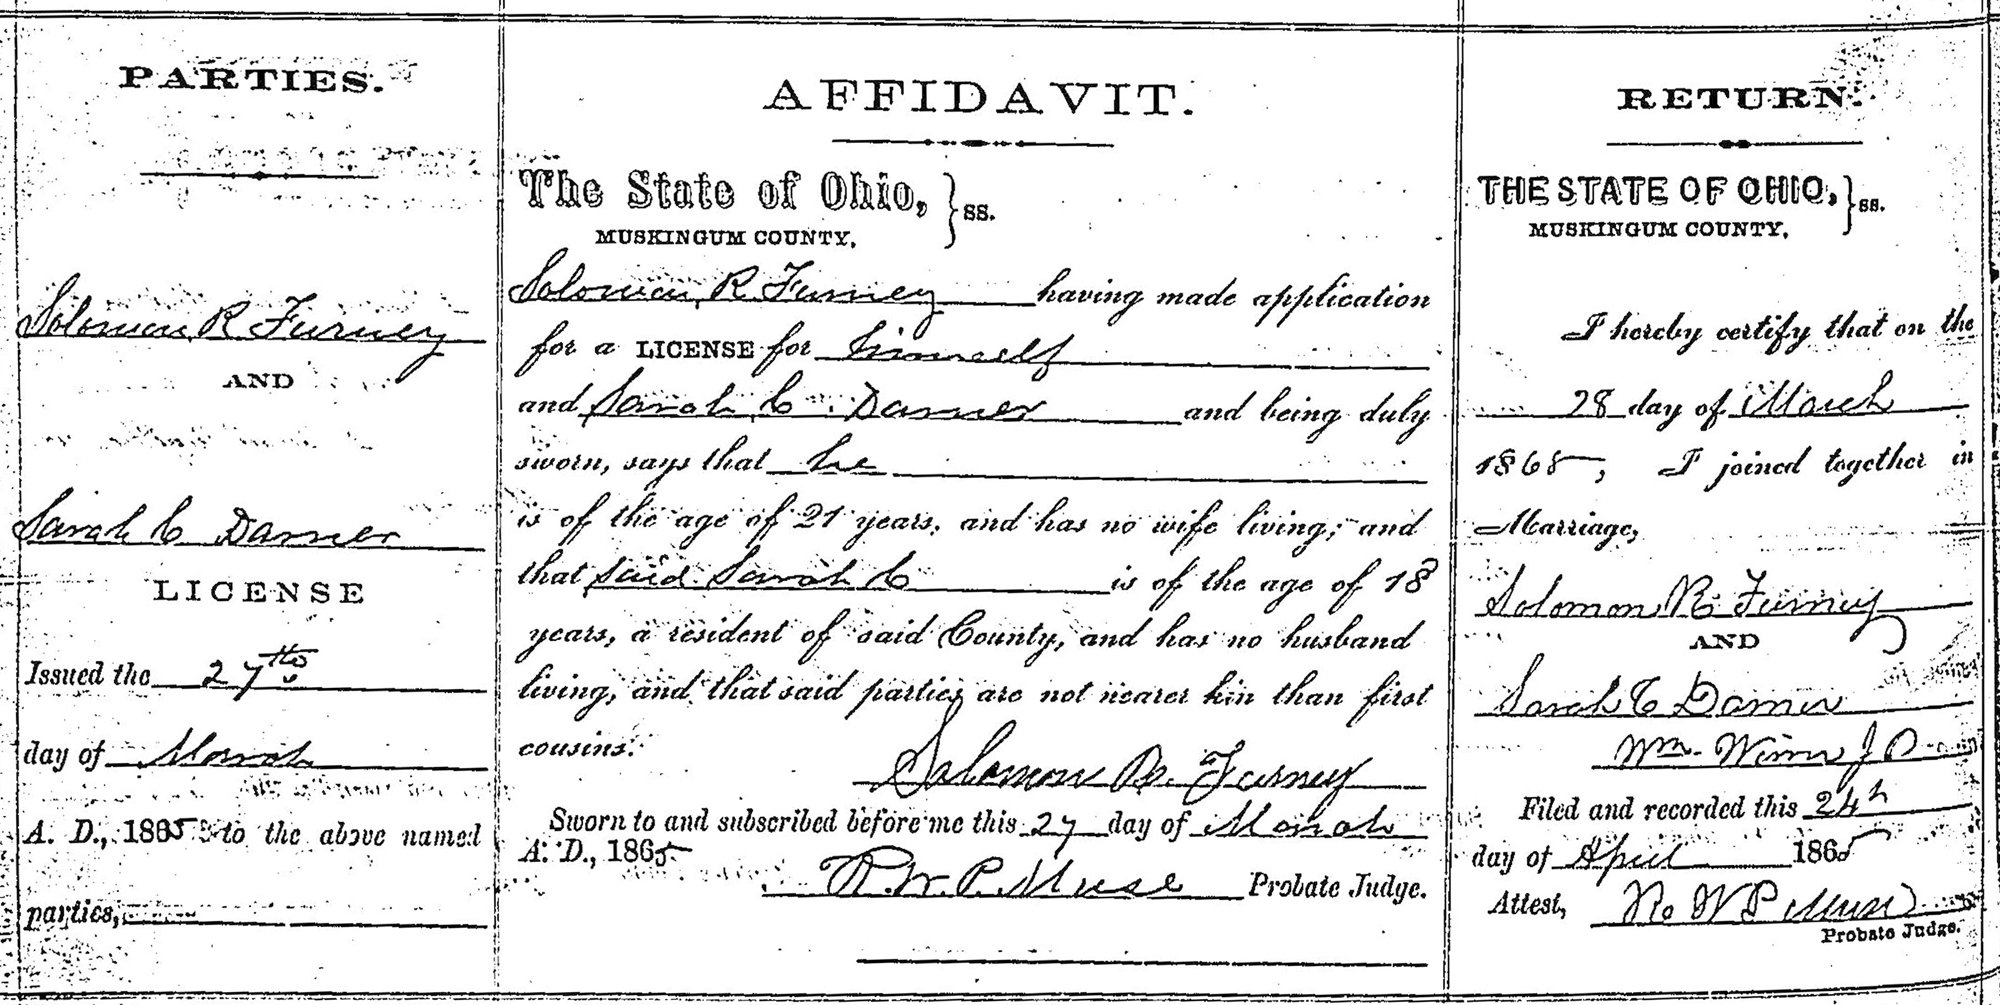 PARTIES.
Solomon R Furney
AND
Sarah C Darner
LICENSE
Issued the 27th
day of March
A. D., 1865 to the above named
parties,
AFFIDAVIT.
The State of Ohio, } ss.
MUSKINGUM COUNTY,
Solomon R Furney having made application
for a LICENSE for himself
and Sarah C. Darner and being duly
sworn, says that he
is of the age of 21 years, and has no wife living; and
that said Sarah C is of the age of 18
years, a resident of said County, and has no husband
living, and that said parties are not nearer kin than first
cousins.
Solomon R. Furney
Sworn to and subscribed before me this 27 day of March
A. D., 1865
R. W. P. Muse Probate Judge.
RETURN.
THE STATE OF OHIO, } ss.
MUSKINGUM COUNTY,
I hereby certify that on the
28 day of March
1865, I joined together in
Marriage,
Solomon R. Furney
AND
Sarah C Darner
Wm. J P
Filed and recorded this 24th
day of April 1865
Attest, R W P Muse
Probate Judge.